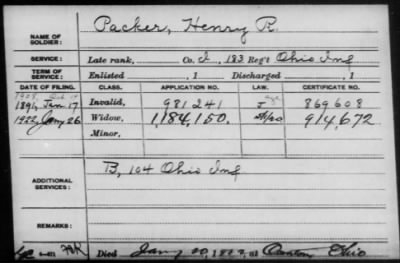 NAME OF SOLDIER: Packer, Henry R.
SERVICE: Late rank, Co. I, 183 Reg't Ohio Inf
TERM OF SERVICE: Enlisted , 1 Discharged , 1
DATE OF FILING. CLASS. APPLICATION NO. LAW. CERTIFICATE NO.
1891, Jan 17 Invalid, 981241 J 869608
1922, Jany 26 Widow, 1,184,150. 914,672
Minor,
ADDITIONAL SERVICES: B, 104 Ohio Inf
REMARKS:
Died Jany 10, at Canton, Ohio